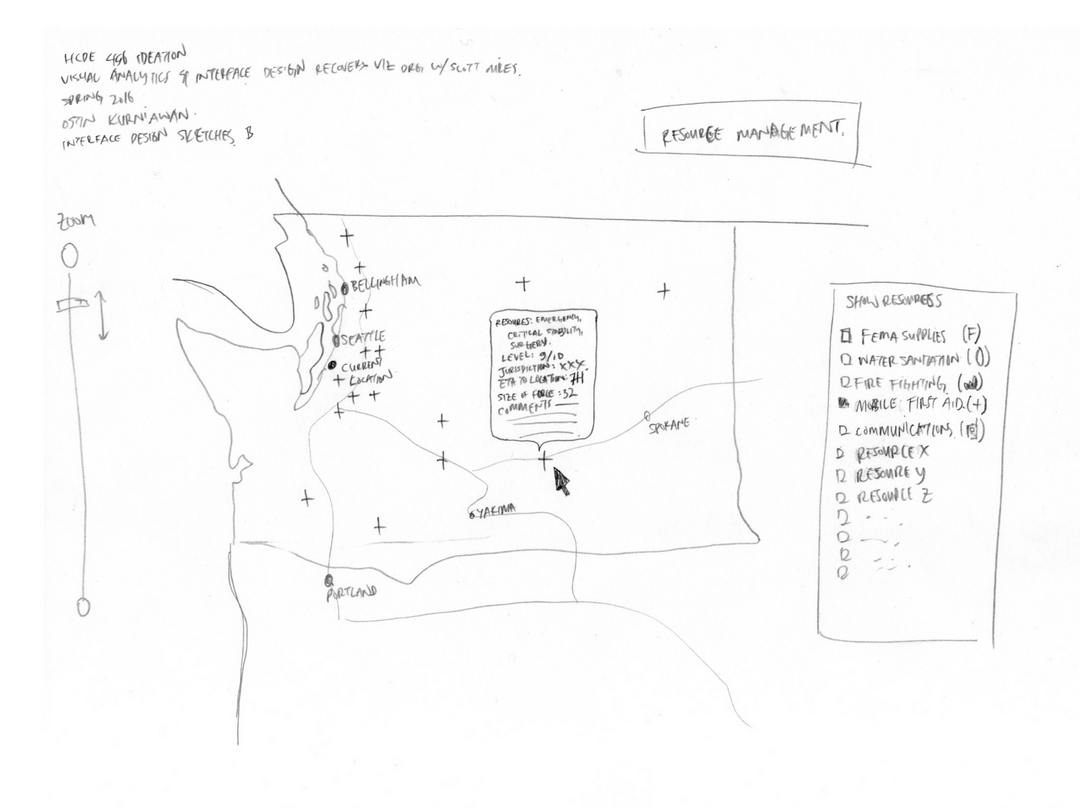 HCDE 496 IDEATION
VISUAL ANALYTICS & INTERFACE DESIGN RECOVERY VIZ ORG W/ SCOTT MILES.
SPRING 2016
OSTIN KURNIAWAN.
INTERFACE DESIGN SKETCHES, B
RESOURCE MANAGEMENT.
ZOOM
BELLINGHAM
SEATTLE
CURRENT
LOCATION
RESOURCES: EMERGENCY,
CRITICAL STABILITY,
SURGERY.
LEVEL: 9/10
JURISDICTION: XXX.
ETA TO LOCATION: 7H
SIZE OF FORCE: 32
COMMENTS
SPOKANE
YAKIMA
PORTLAND
SHOW RESOURCES
FEMA SUPPLIES (F)
WATER SANITATION
FIRE FIGHTING,
MOBILE FIRST AID (+)
COMMUNICATIONS,
RESOURCE X
RESOURE Y
RESOURCE Z